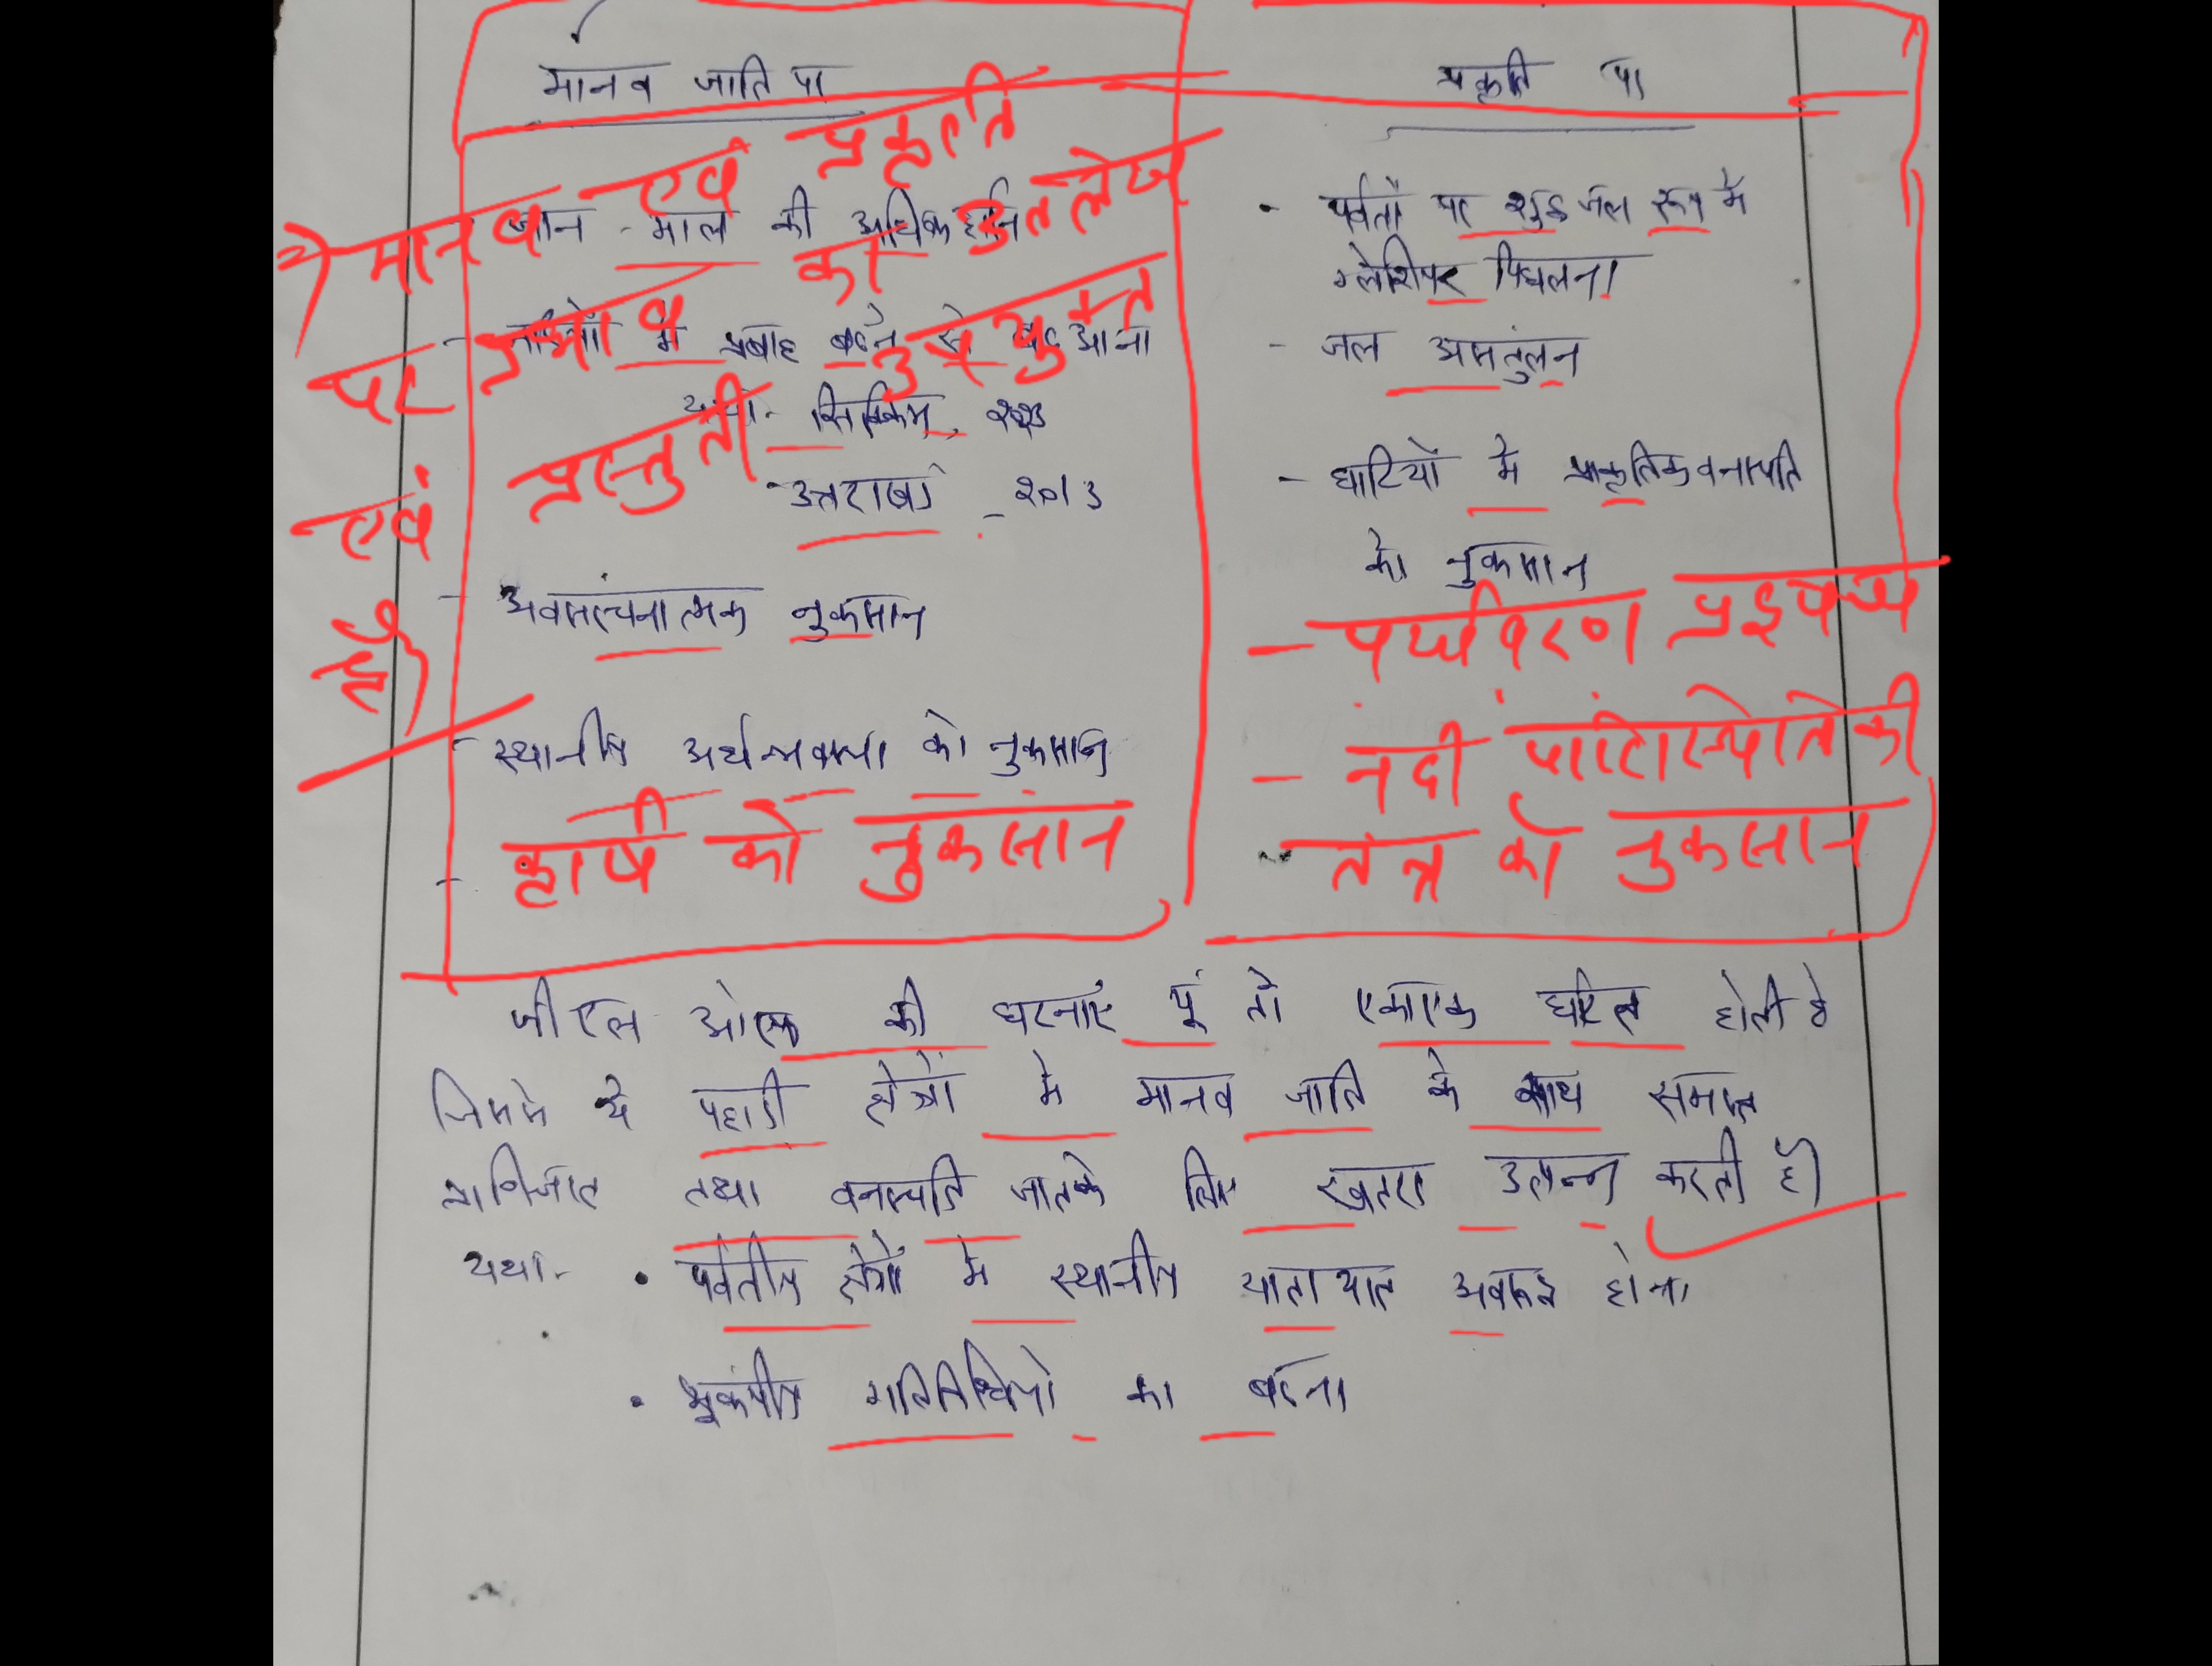 मानव जाति पर
जान-माल की अधिक हानि
में प्रवाह बढ़ने से बाढ़ आना
यथा- सिक्किम, २०२३
उत्तराखंड - २०१३
- अवसंरचनात्मक नुकसान
- स्थानीय अर्थव्यवस्था को नुकसान
- कृषि को नुकसान
प्रकृति पर
• पर्वतों पर शुद्ध जल रूप में
ग्लेशियर पिघलना
- जल असंतुलन
- घाटियों में प्राकृतिक वनस्पति
को नुकसान
- पर्यावरण
- नदी पारिस्थितिकी
तंत्र को नुकसान
मानव एवं प्रकृति
पर प्रभाव का उल्लेख
एवं प्रस्तुती उपयुक्त
है।
जीएल ओएफ की घटनाएं यूं तो एकाएक घटित होती है
जिसमे ये पहाडी क्षेत्रों में मानव जाति के साथ समस्त
तथा वनस्पति जात के लिए खतरा उत्पन्न करती है।
यथा- • पर्वतीय क्षेत्रों में स्थानीय यातायात अवरूद्ध होना
• भूकंपीय गतिविधियों का बढना